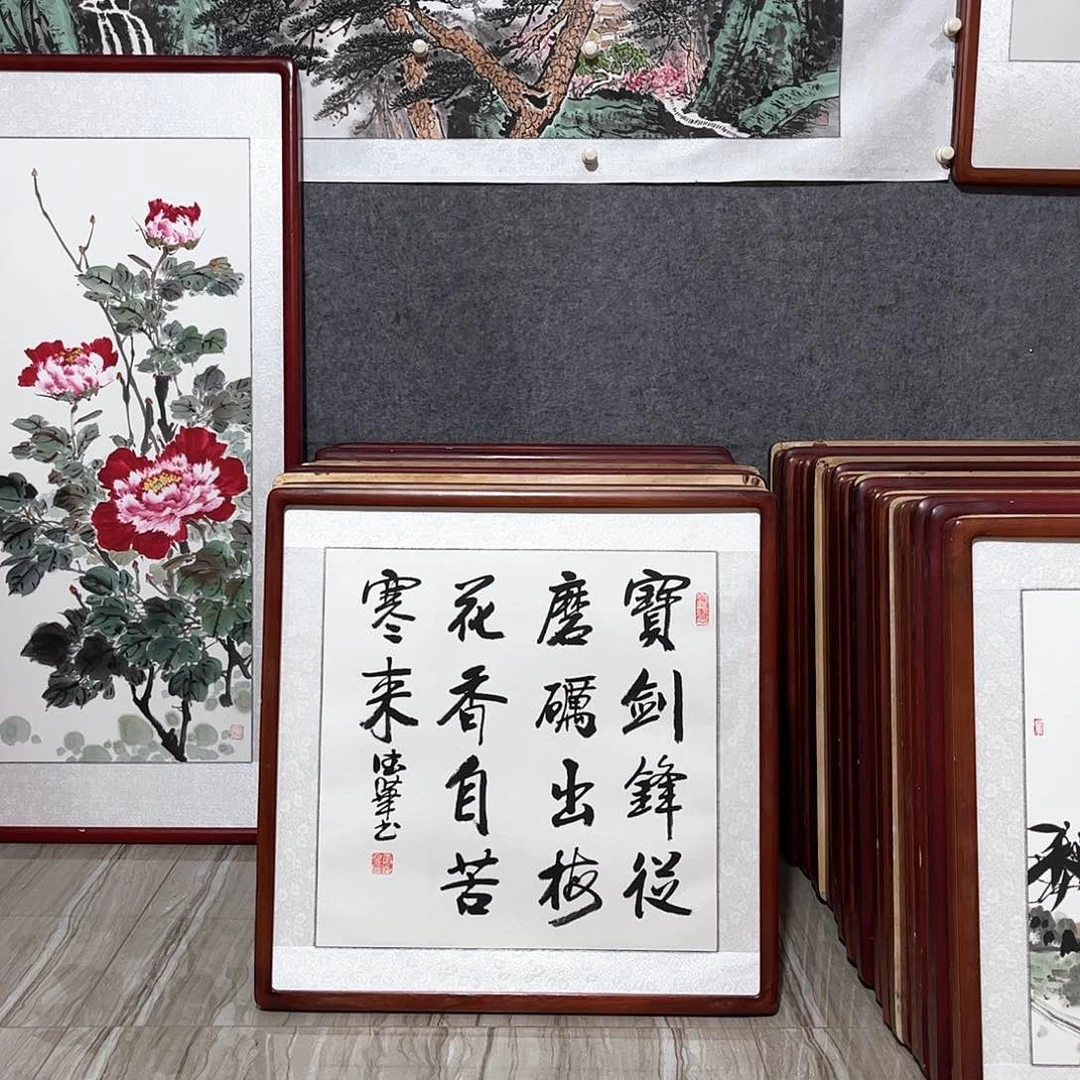 寶劍鋒從
磨礪出梅
花香自苦
寒来
德華书